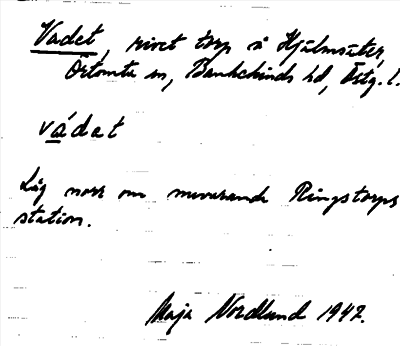 Vadet, rivet torp å Hjälmsäter,
Örtomta sn, Bankekinds hd, Östg. l.
vádat
Låg norr om nuvarande Ringstorps
station.
Maja Nordlund 1942.